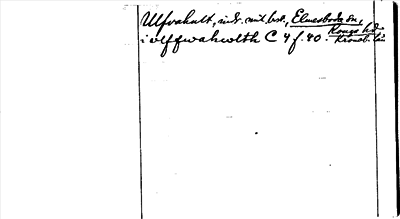 Ulfvahult, Elmeboda sn,
Konga hd
i vlffwahwlth C 4 f. 40. Kronob. län